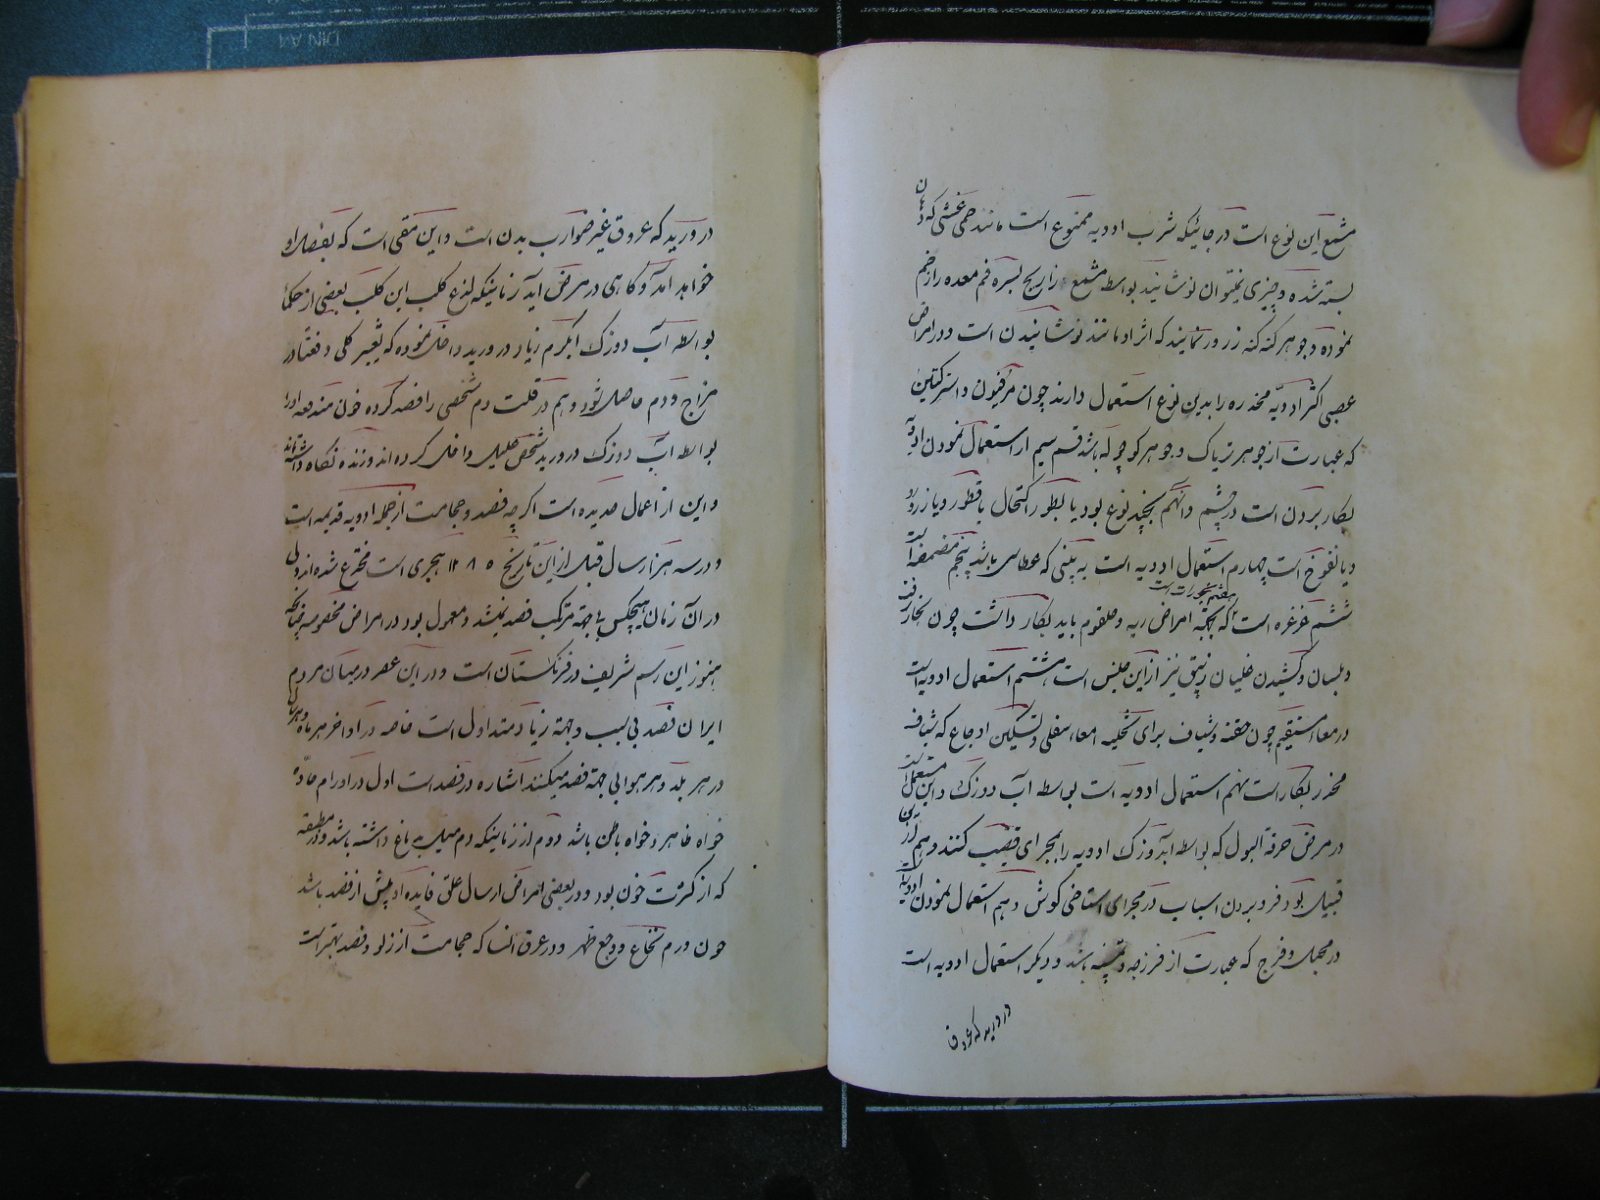 مشبع این نوع است در جائیکه شرب ادویه ممنوع است مانند حمی غشی که دهان
بسته شده و چیزی نمیتوان نوشانید بواسطه مشبع زراریح بسره فم معده را زخم
نموده و جوهر کنه کنه زرور نمایند که اثر او مانند نوشانیدن است و در امراض
عصبی اکثر ادویه مخدره را بدین نوع استعمال دارند چون مرفیون و استرکنین
که عبارت از جوهر تریاک و جوهر کوچوله باشد قسم سیم از استعمال نمودن ادویه
بکار بردن است در چشم و آنهم بچند نوع بود یا بطور اکتحال یا قطور و یا زرور
و یا نفوخ است چهارم استعمال ادویه است به بینی که عطاس باشد پنجم مضمضه است
ششم غرغره است هفتم بخورات است که بجهة امراض ریه و حلقوم باید بکار داشت چون بخار زفت
و بلسان و کشیدن غلیان زیبق نیز از این جنس است هشتم استعمال ادویه است
در معاء مستقیم چون حقنه و شیاف برای تخلیه امعاء سفلی و تسکین اوجاع که شیاف
مخدر بکار است نهم استعمال ادویه است بواسطه آب دوزک و این مستعمل است
در مرض حرقة البول که بواسطه آبدوزک ادویه را بمجرای قضیب کنند و هم از این
قبیل بود فرو بردن اسباب در مجرای استاخی گوش دهم استعمال نمودن ادویه
در مهبل و فرج که عبارت از فرزجه و باشد و دیگر استعمال ادویه است
در ورید که عروق
در ورید که عروق غیر ضوارب بدن است و این مقی است که بفصل او
خواهد آمد و گاهی در مرض آید زمانیکه لزع کلب ابن کلب بعضی از حکما
بواسطه آب دوزک آبگرم زیاد در ورید داخل نموده که تغییر کلی دفعتا در
مزاج و دم حاصل شود و هم در قلت دم شخصی را فصد کرده خون مندفعه او را
بواسطه آب دوزک در ورید شخص علیل داخل کرده اند و زنده نگاه داشته اند
و این از اعمال جدیده است اگر چه فصد و حجامت از جمله ادویه قدیمه است
و در سه هزار سال قبل از این تاریخ ۱۲۸۵ هجری است مخترع شده اند ولی
در آن زمان هیچکس بلاجهة مرتکب فصد نمیشد و معمول بود در امراض مخصوصه چنانکه
هنوز این رسم شریف در فرنگستان است و در این عصر در میان مردم
ایران فصد بی سبب و جهة زیاد متداول است خاصه در اواخر هر ماه و هر سال
در هر بلد و هر هوا بی جهة فصد میکنند اشاره در فصد است اول در اورام حاده
خواه ظاهر و خواه باطن باشد دوم از زمانیکه دم میل بدماغ داشته باشد و در مطبقه
که از کثرت خون بود و در بعضی امراض ارسال علق فایده او بیش از فصد باشد
چون ورم نخاع و وجع ظهر و در عرق النسا که حجامت از زلو و فصد بهتر است